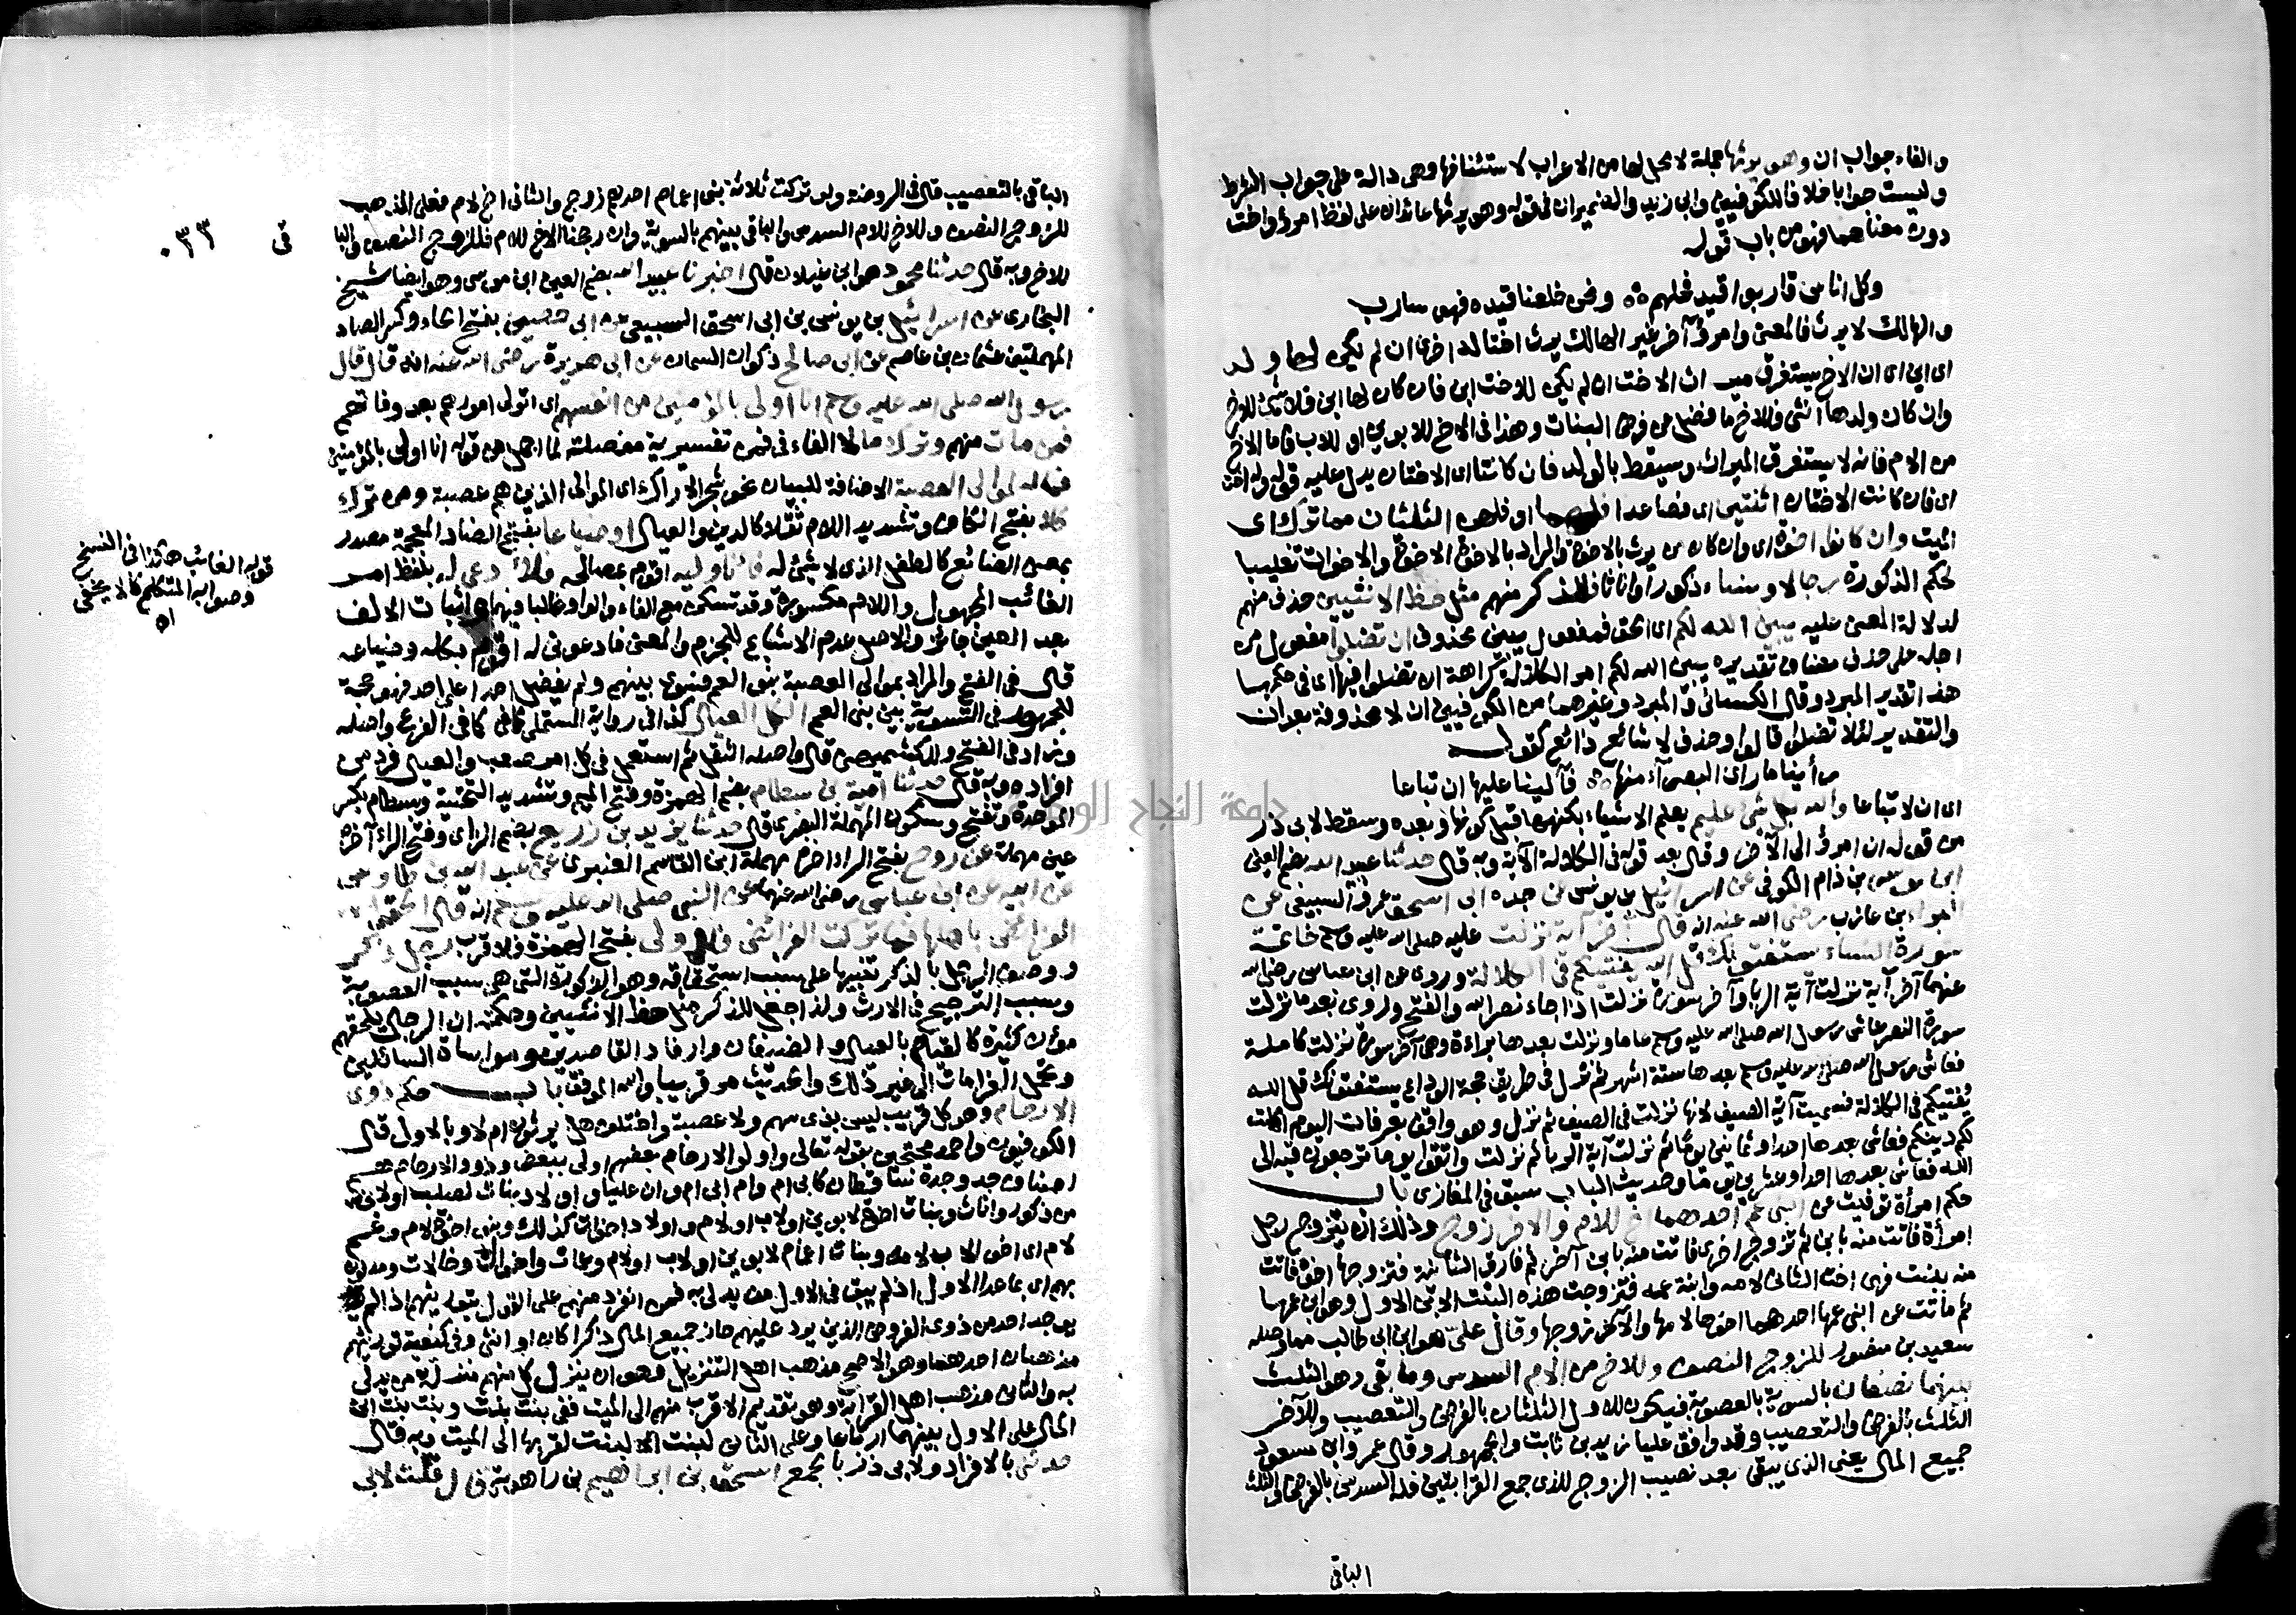 والفاء جواب ان وهو يرثها جملة لا محل لها من الاعراب لاستئنافها وهى دالة على جواب الشرط
وليست جوابا خلافا للكوفيين وابى زيد والضميران فى قوله وهو يرثها عائدان على لفظ امرؤ واخت
دون معناهما فهو من باب قوله
وكل اناس قاربوا قيد فحلهم ونحن خلعنا قيده فهو سارب
والهالك لا يرث فالمعنى وامرؤ آخر غير الهالك يرث اختا له اخرى ان لم يكن لها ولد
اى ابن اى ان الاخ يستغرق ميراث الاخت ان لم يكن للاخت ابن فان كان لها ابن فلا شئ للاخ
وان كان ولدها انثى فللاخ ما فضل عن فرض البنات وهذا فى الاخ للابوين او للاب فاما الاخ
من الام فانه لا يستغرق الميراث ويسقط بالولد فان كانتا اى الاختان يدل عليه قوله وله اخت
اى فان كانت الاختان اثنتين اى فصاعدا او فلهن الثلثان مما ترك اى
الميت وان كانوا اخوة اى وان كان من يرث بالاخوة والمراد بالاخوة الاخوة والاخوات تغليبا
لحكم الذكورة رجالا ونساء ذكورا واناثا فللذكر منهم مثل حظ الانثيين حذف منهم
لدلالة المعنى عليه يبين الله لكم اى الحق فمفعول يبين محذوف ان تضلوا مفعول من
اجله على حذف مضاف تقديره يبين الله لكم امر الكلالة كراهة ان تضلوا فيها اى فى حكمها
هذا تقدير المبرد وقال الكسائى والمبرد وغيرهما من الكوفيين ان لا محذوفة بعد ان
والتقدير لئلا تضلوا قالوا وحذف لا شائع ذائع كقوله
رأينا ما رأى البصراء منها فآلينا عليها ان تباعا
اى ان لا تباعا والله بكل شئ عليم يعلم الاشياء بكنهها قبل كونها وبعده وسقط لابى ذر
من قوله ان امرؤ الى الآخر وقال بعد قوله فى الكلالة الآية وبه قال حدثنا عبيد الله بضم العين
ابن موسى بن باذام الكوفى عن اسرائيل بن يونس عن جده ابى اسحق عمرو السبيعى عن
البراء بن عازب رضى الله عنه انه قال آخر آية نزلت عليه صلى الله عليه وسلم خاتمة
سورة النساء يستفتونك قل الله يفتيكم فى الكلالة وروى عن ابن عباس رضى الله
عنهما آخر آية نزلت آية الربا وآخر سورة نزلت اذا جاء نصر الله والفتح وروى بعد ما نزلت
سورة النصر عاش رسول الله صلى الله عليه وسلم عاما ونزلت بعدها براءة وهى آخر سورة نزلت كاملة
فعاش رسول الله صلى الله عليه وسلم بعدها ستة اشهر ثم نزل فى طريق حجة الوداع يستفتونك قل الله
يفتيكم فى الكلالة فسميت آية الصيف لانها نزلت فى الصيف ثم نزل وهو واقف بعرفات اليوم اكملت
لكم دينكم فعاش بعدها احدا وثمانين يوما ثم نزلت آية الربا ثم نزلت واتقوا يوما ترجعون فيه الى
الله فعاش بعدها احدا وعشرين يوما وحديث الباب سبق فى المغازى باب
حكم امرأة توفيت عن ابنى عم احدهما اخ للام والاخر زوج وذلك ان يتزوج رجل
امرأة فاتت منه بابن ثم تزوج اخرى فاتت منه بابن آخر ثم فارق الثانية فتزوجها اخوه فاتت
منه ببنت فهى اخت الثانى لامه وابنة عمه فتزوجت هذه البنت الابن الاول وهو ابن عمها
ثم ماتت عن ابنى عمها احدهما اخوها لامها والآخر زوجها وقال على هو ابن ابى طالب مما وصله
سعيد بن منصور للزوج النصف وللاخ من الام السدس وما بقى وهو الثلث
بينهما نصفان بالسوية بالعصوبة فيكون للاول الثلثان بالفرض والتعصيب وللآخر
الثلث بالفرض والتعصيب وقد وافق عليا زيد بن ثابت والجمهور وقال عمر وابن مسعود
جميع المال يعنى الذى يبقى بعد نصيب الزوج للذى جمع القرابتين فله السدس بالفرض والثلث
الباقى
الباقى بالتعصيب قال فى الروضة ولو تركت ثلاثة بنى اعمام احدهم زوج والثانى اخ لام فعلى المذهب
للزوج النصف وللاخ للام السدس والباقى بينهم بالسوية وان رجحنا الاخ للام فللزوج النصف والباقى
للاخ وبه قال حدثنا محمود هو ابن غيلان قال اخبرنا عبيد الله بضم العين ابن موسى وهو ايضا شيخ
البخارى عن اسرائيل بن يونس بن ابى اسحق السبيعى عن ابى حصين بفتح الحاء وكسر الصاد
المهملتين عثمان بن عاصم عن ابى صالح ذكوان السمان عن ابى هريرة رضى الله عنه انه قال قال
رسول الله صلى الله عليه وسلم انا اولى بالمؤمنين من انفسهم اى اتولى امورهم بعد وفاتهم
فمن مات منهم وترك مالا الفاء فى فمن تفسيرية مفصلة لما اجمل من قوله انا اولى بالمؤمنين
فماله لموالى العصبة الاضافة للبيان نحو شجر الاراك اى الموالى الذين هم عصبة ومن ترك
كلا بفتح الكاف وتشديد اللام ثقلا كالدين والعيال او ضياعا بفتح الضاد المعجمة مصدر
بمعنى الضائع كالطفل الذى لا شئ له فانا وليه اقوم بمصالحه فلأدعى له بلفظ امر
الغائب المجهول واللام مكسورة وقد تسكن مع الفاء والواو غالبا فيهما واثبات الالف
بعد العين جائز والاصل عدم الاشباع للجزم والمعنى فادعونى له اقوم بكله وضياعه
قال فى الفتح والمراد بموالى العصبة بنو العم فسوى بينهم ولم يفضل احدا على احد فهو حجة
للجمهور فى التسوية بين بنى العم الكل العيال كذا فى رواية المستملى كما فى الفرع واصله
وزاد فى الفتح وللكشميهنى قال واصله الثقل ثم استعمل فى كل امر صعب والعيال فرد من
افراده وبه قال حدثنا امية بن بسطام بضم الهمزة وفتح الميم وتشديد التحتية وبسطام بكسر
الموحدة وتفتح وسكون المهملة البصرى قال حدثنا يزيد بن زريع بضم الزاى وفتح الراء آخره
عين مهملة عن روح بفتح الراء اخره مهملة ابن القاسم العنبرى عن عبد الله بن طاوس
عن ابيه عن ابن عباس رضى الله عنهما عن النبى صلى الله عليه وسلم انه قال الحقوا
الفرائض باهلها فما تركت الفرائض فلاولى بفتح الهمزة فلاقرب رجل ذكر
ووصف الرجل بالذكر تنبيها على سبب استحقاقه وهو الذكورة التى هى سبب العصوبة
وسبب الترجيح فى الارث ولذا جعل للذكر مثل حظ الانثيين وحكمته ان الرجال يلحقهم
مؤن كثيرة كالقيام بالعيال والضيفان وارفاد القاصدين ومواساة السائلين
وتحمل الغرامات الى غير ذلك والحديث مر قريبا والله الموفق باب حكم ذوى
الارحام وهو كل قريب ليس بذى سهم ولا عصبة واختلف هل يرثون ام لا وبالاول قال
الكوفيون واحمد محتجين بقوله تعالى واولو الارحام بعضهم اولى ببعض وذوو الارحام هم
اصناف جد وجدة ساقطان كابى ام وام ابى ام وان عليا واولاد بنات لصلب او لابن
من ذكور واناث وبنات اخوة لابوين او لاب او لام واولاد اخوات كذلك وبنو اخوة لام وعم
لام اى اخو الاب لامه وبنات اعمام لابوين او لاب او لام وعمات واخوال وخالات ومدلون
بهم اى بما عدا الاول اذ لم يبق فى الاول من يدلى به فمن انفرد منهم على القول بتوريثهم اذا لم
يوجد احد من ذوى الفروض الذين يرد عليهم حاز جميع المال ذكرا كان او انثى وفى كيفية توريثهم
مذهبان احدهما وهو الاصح مذهب اهل التنزيل وهو ان ينزل كل منهم منزلة من يدلى
به والثانى مذهب اهل القرابة وهو تقديم الاقرب منهم الى الميت ففى بنت بنت وبنت بنت ابن
المال على الاول بينهما ارباعا وعلى الثانى لبنت البنت لقربها الى الميت وبه قال
حدثنى بالافراد ولابى ذر بالجمع اسحق بن ابراهيم بن راهويه قال قلت لابى
فى ٠٣٣
قوله الغائب هكذا فى النسخ
وصوابه المتكلم كما لا يخفى
اه
جامعة النجاح الوطنية